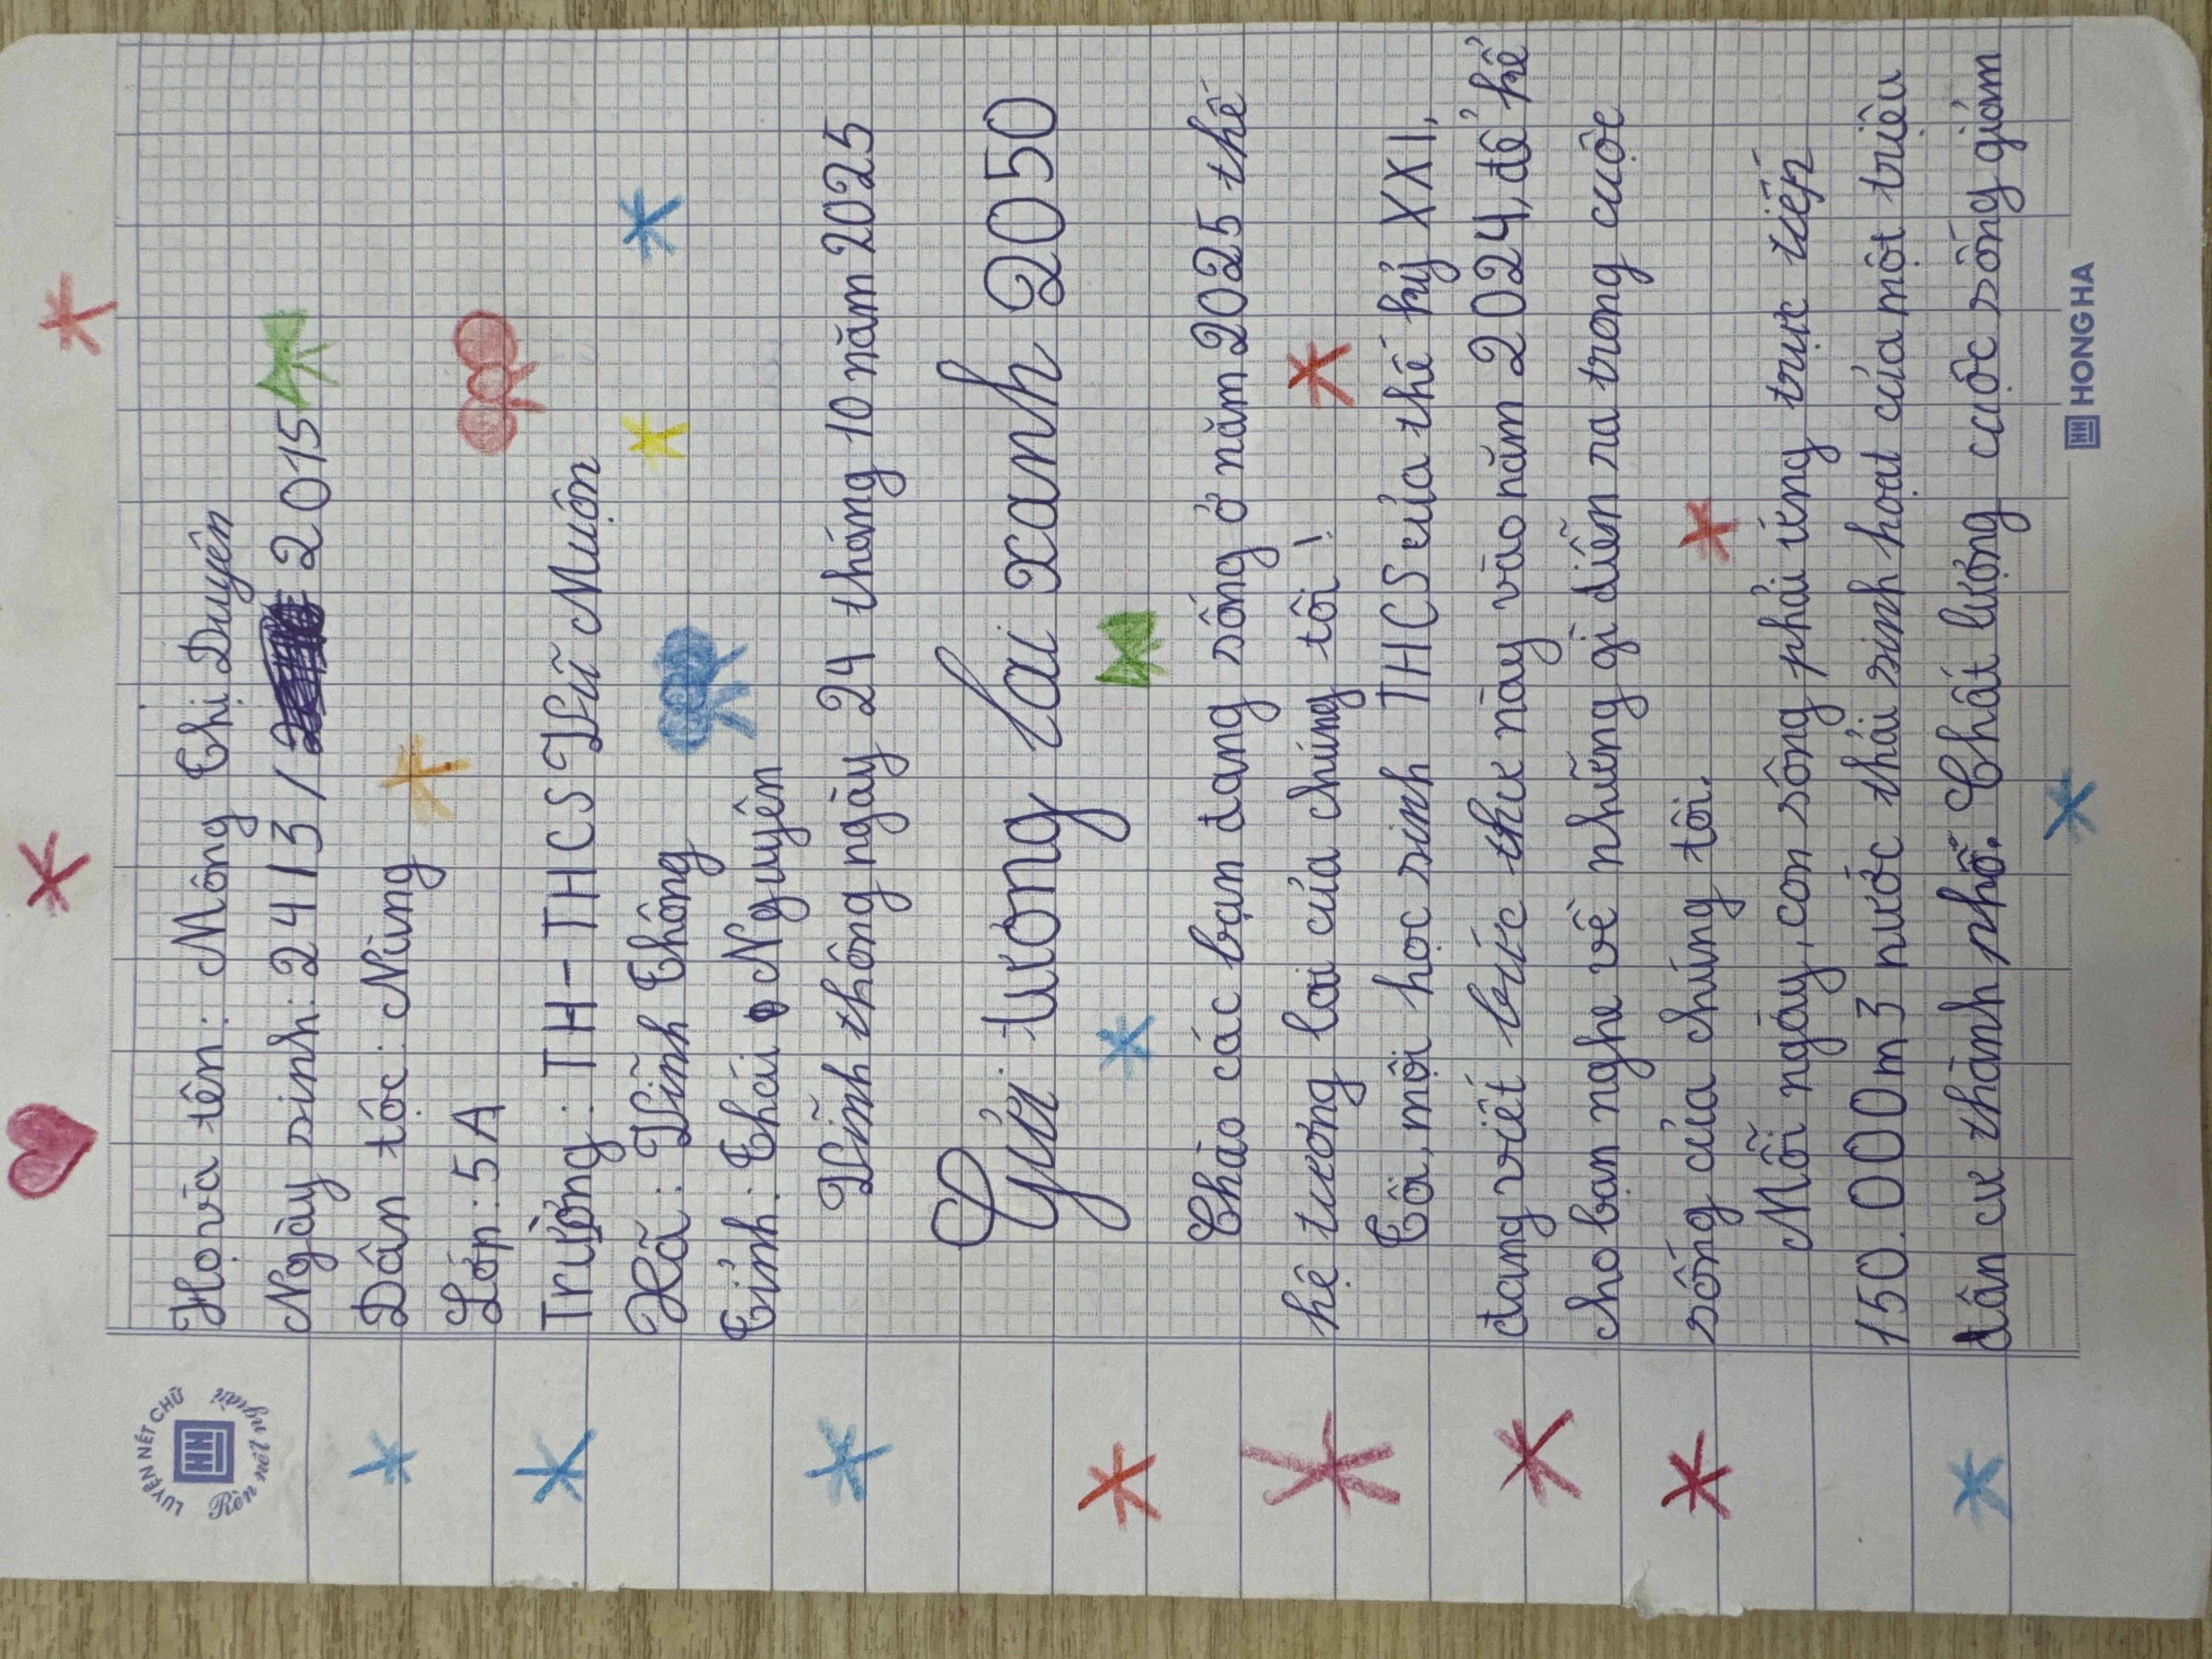 LUYỆN NÉT CHỮ
Rèn nết người
Họ và tên: Mông Thị Duyên
Ngày sinh: 24/3/ 2015
Dân tộc: Nùng
Lớp: 5A
Trường: TH-THCS Vũ Muộn
Xã: Vĩnh Thông
Tỉnh: Thái Nguyên
Vĩnh thông ngày 24 tháng 10 năm 2025
Gửi tương lai xanh 2050
Chào các bạn đang sống ở năm 2025 thế
hệ tương lai của chúng tôi!
Tôi, một học sinh THCS của thế kỷ XXI,
đang viết bức thư này vào năm 2024, để kể
cho bạn nghe về những gì diễn ra trong cuộc
sống của chúng tôi.
Mỗi ngày, con sông phải ứng trực tiếp
150.000m3 nước thải sinh hoạt của một triệu
dân cư thành phố. Chất lượng cuộc sống giảm
HONG HA